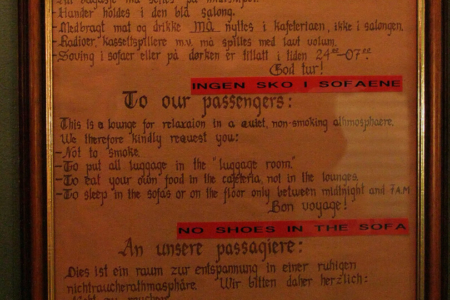 -Hunder holdes i den blå salong.
-Medbragt mat og drikke må nytes i kafeteriaen, ikke i salongen.
-Radioer, kassettspillere m.v. må spilles med lavt volum.
-Soving i sofaer eller på dørken er tillatt i tiden 24⁰⁰-07⁰⁰.
God tur!
INGEN SKO I SOFAENE
To our passengers:
This is a lounge for relaxaion in a quiet, non-smoking athmosphaere.
We therefore kindly request you:
-Not to smoke
-To put all luggage in the "luggage room."
-To eat your own food in the cafeteria, not in the lounges.
-To sleep in the sofas or on the floor only between midnight and 7AM
Bon voyage!
NO SHOES IN THE SOFA
An unsere passagiere:
Dies ist ein raum zur entspannung in einer ruhigen
nichtraucherathmasphäre. Wir bitten daher herzlich: